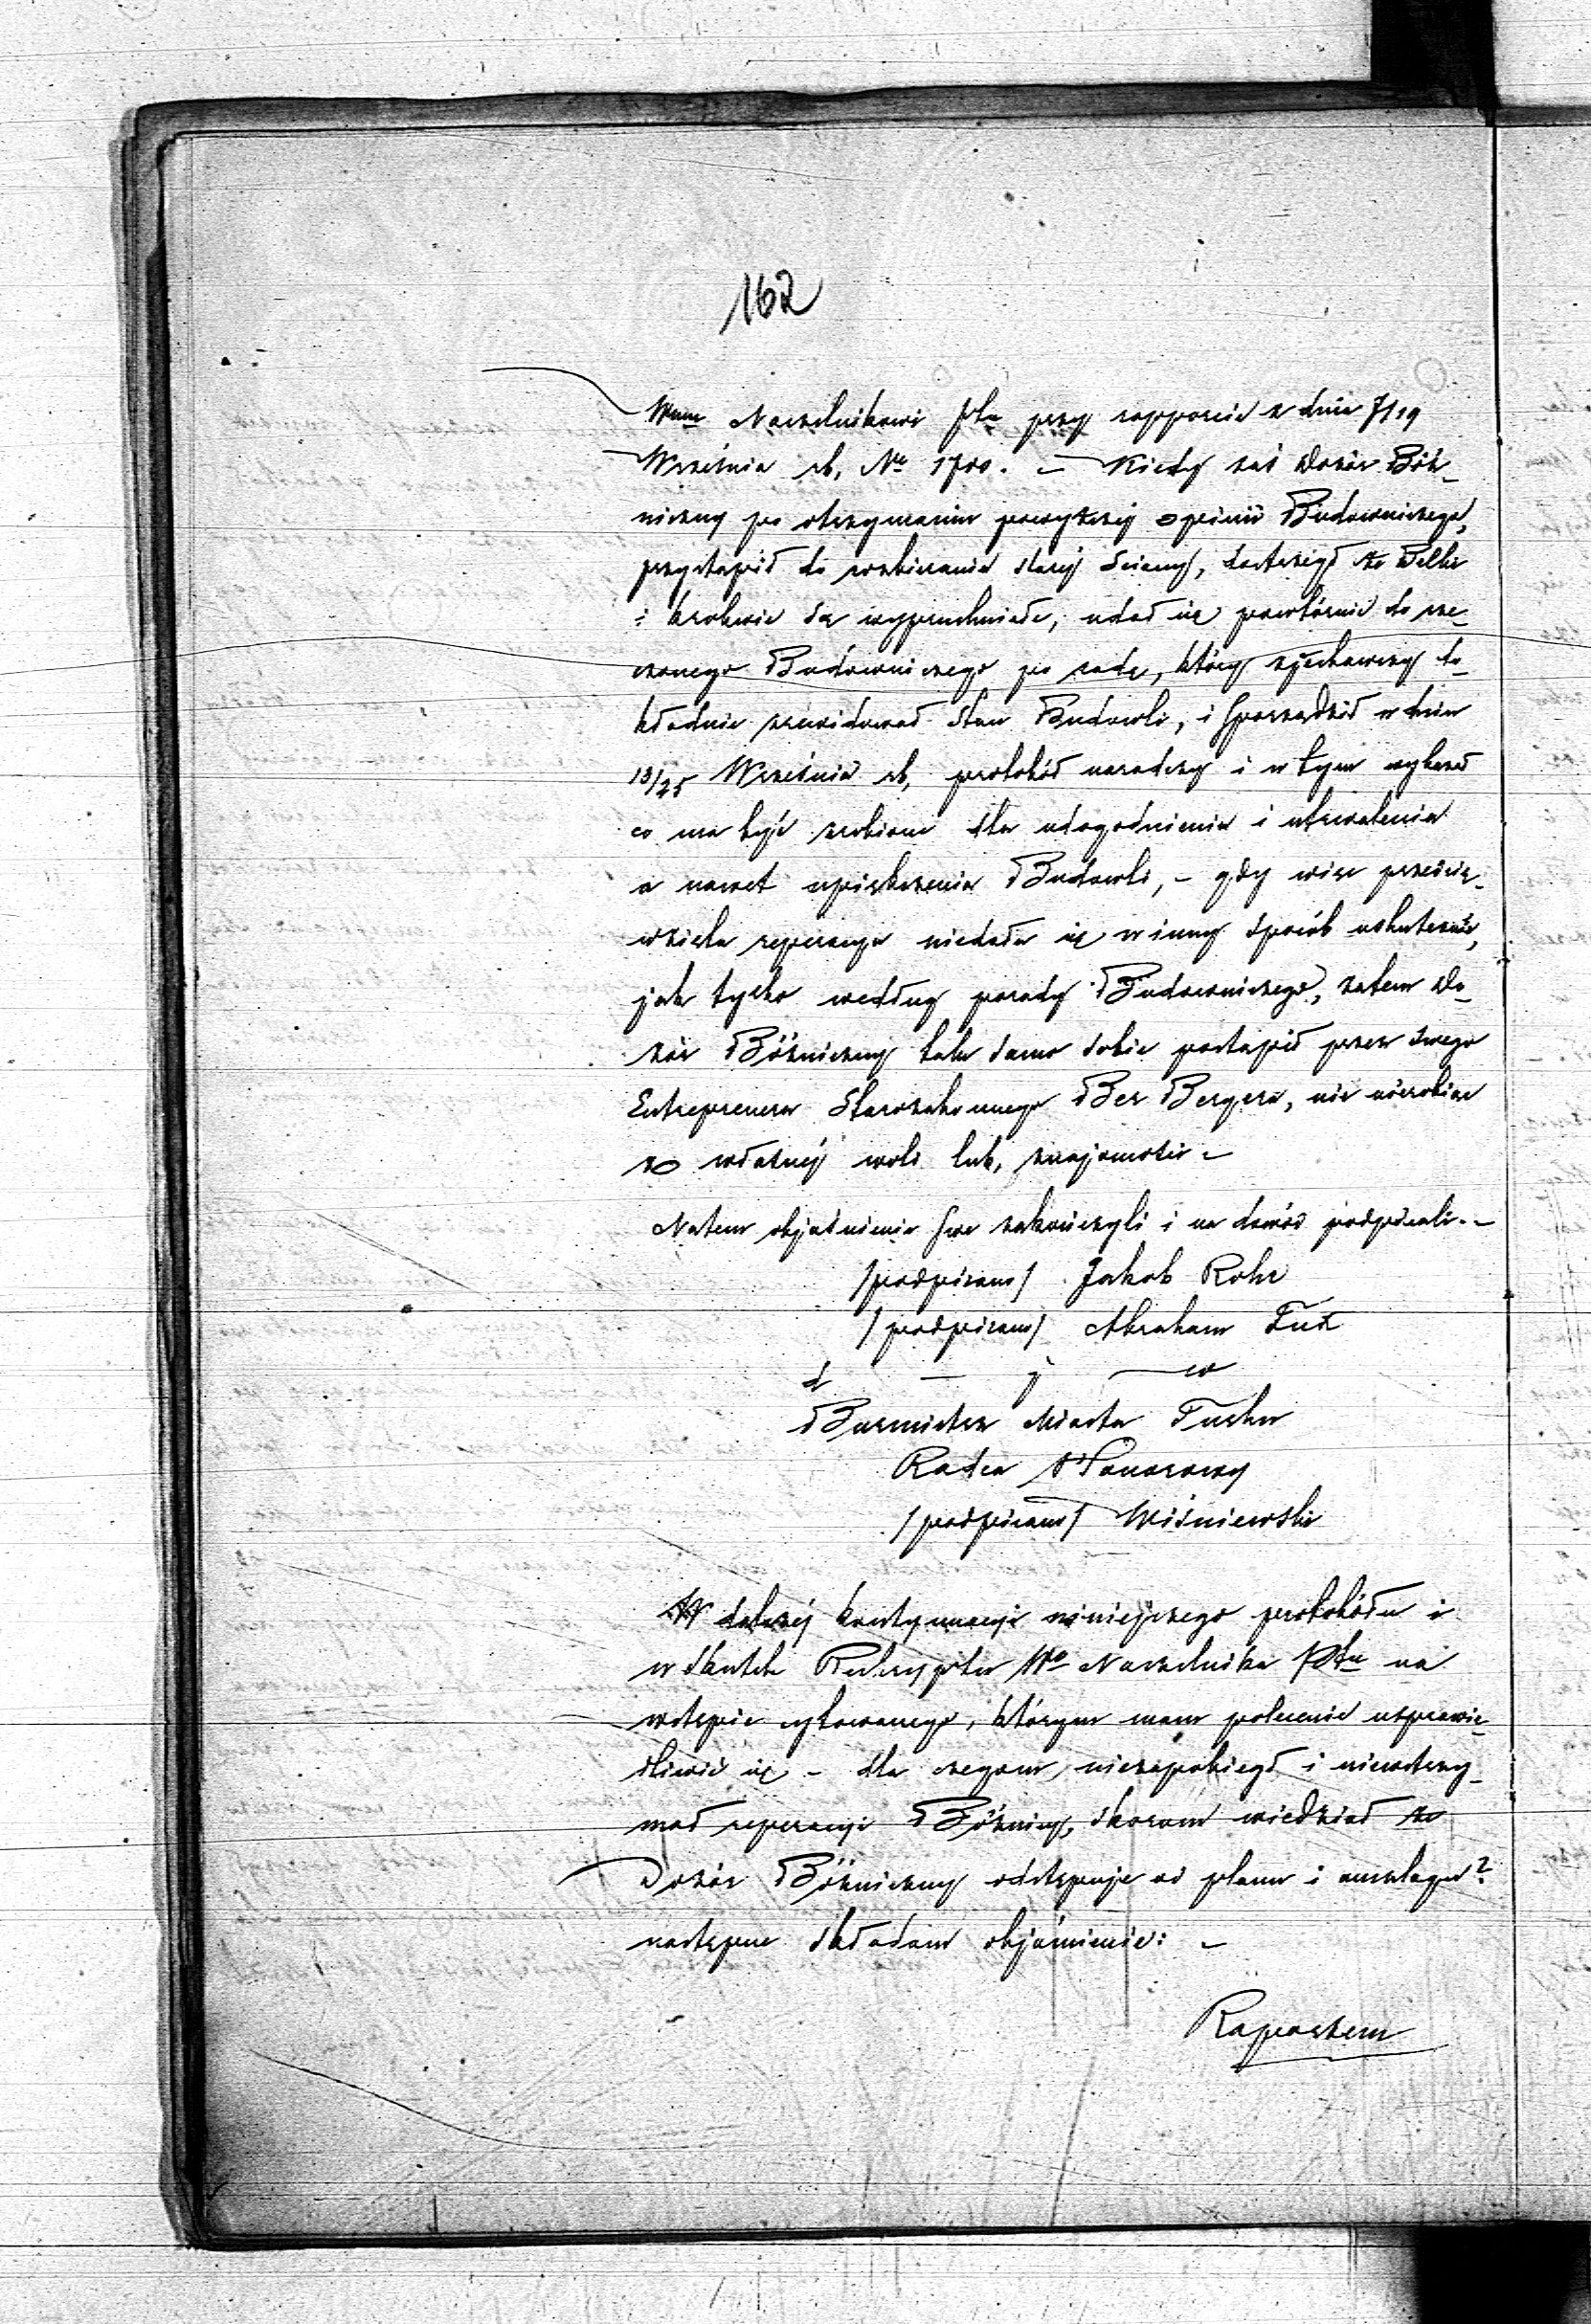 162
Wmu Naczelnikowi Ptu przy rapporcie z dnia 7/19
Września rb, No 1700. – Kiedy zaś Dozór Bóż-
niczny po otrzymaniu powyższéj opinii Budowniczego,
przystąpił do rozbierania staréj ściany, dostrzegł że Belki
i krokwie są wypruchniałe, udał się powtórnie do rze-
czonego Budowniczego po radę, który zjechawszy do-
kładnie zrewidował stan Budowli, i sporządził w dniu
13/25 Września rb, protokół naradczy i w tym wykazał
co ma być zrobione dla udogodnienia i utrwalenia
a nawet upiększenia Budowli, – gdy więc przedsię-
wzięta reperacya niedała się w inny sposób uskutecznić,
jak tylko według porady Budowniczego, zatem Do-
zór Bóżniczny tak samo sobie postąpił przez swego
Entreprenera Starozakonnego Ber Bergera, nic nierobiąc
z własnéj woli lub, znajomości –
Natem objaśnienie swe zakończyli i na dowód podpisali. –
/podpisano/ Jakob Rohr
/podpisano/ Abraham Fuż
d – j – w
Burmistrz Miasta Turku
Radca Honorowy
/podpisano/ Wiśniewski
W dalszéj kontynuacyi niniejszego protokółu i
w skutek Reskryptu Wo Naczelnika Ptu na
wstępie cytowanego, którym mam polecenie usprawie-
dliwić się – dla czegom niezapobiegł i niewstrzy-
mał reperacyi Bóżnicy, skorom wiedział że
Dozór Bóżniczny odstępuje od planu i anszlagu?
następne składam objaśnienie: –
Raportem